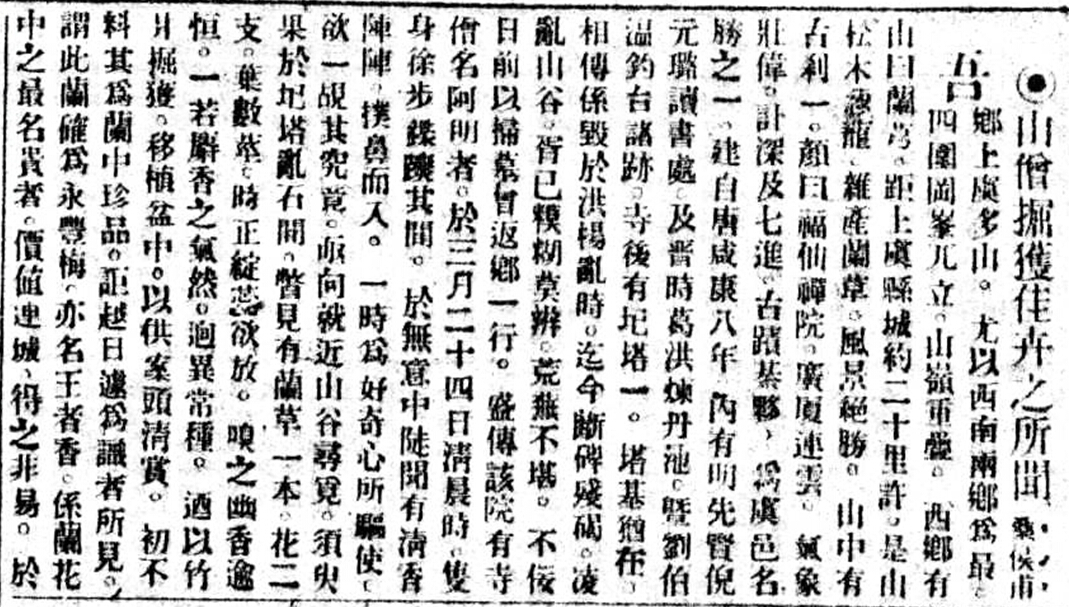 ◉山僧掘獲佳卉之所聞
吾鄉上虞多山。尤以西南兩鄉爲最
四圍岡峯兀立。山嶺重疊。西鄉有
山曰蘭芎。距上虞縣城約二十里許。是山
松木蘢。雜產蘭草。風景絕勝。山中有
古刹一。顏曰福仙禪院。廣廈連雲。氣象
壯偉。計深及七進。古蹟綦夥，爲虞邑名
勝之一。建自唐咸康八年。內有明先賢倪
元璐讀書處。及晋時葛洪煉丹池。曁劉伯
温釣台諸跡。寺後有圮塔一。塔基猶存。
相傳係毁於洪楊亂時。迄今斷碑殘碣。凌
亂山谷。胥已糢糊莫辨。荒蕪不堪。不佞
日前以掃墓曾返鄉一行。盛傳該院有寺
僧名阿明者。於三月二十四日淸晨時。隻
身徐步蹀躞其間。於無意中陡聞有淸香
陣陣。撲鼻而入。一時爲好奇心所驅使。
欲一覘其究竟。亟向就近山谷尋覓。須臾
果於圮塔亂石間。瞥見有蘭草一本。花二
支。葉數莖。時正綻蕊欲放。嗅之幽香逾
恒。一若麝香之氣然。迥異常種。迺以竹
爿掘獲。移植盆中。以供案頭淸賞。初不
料其爲蘭中珍品。詎越日遽爲識者所見。
謂此蘭確爲永豐梅。亦名王者香。係蘭花
中之最名貴者。價値連城、得之非易。於